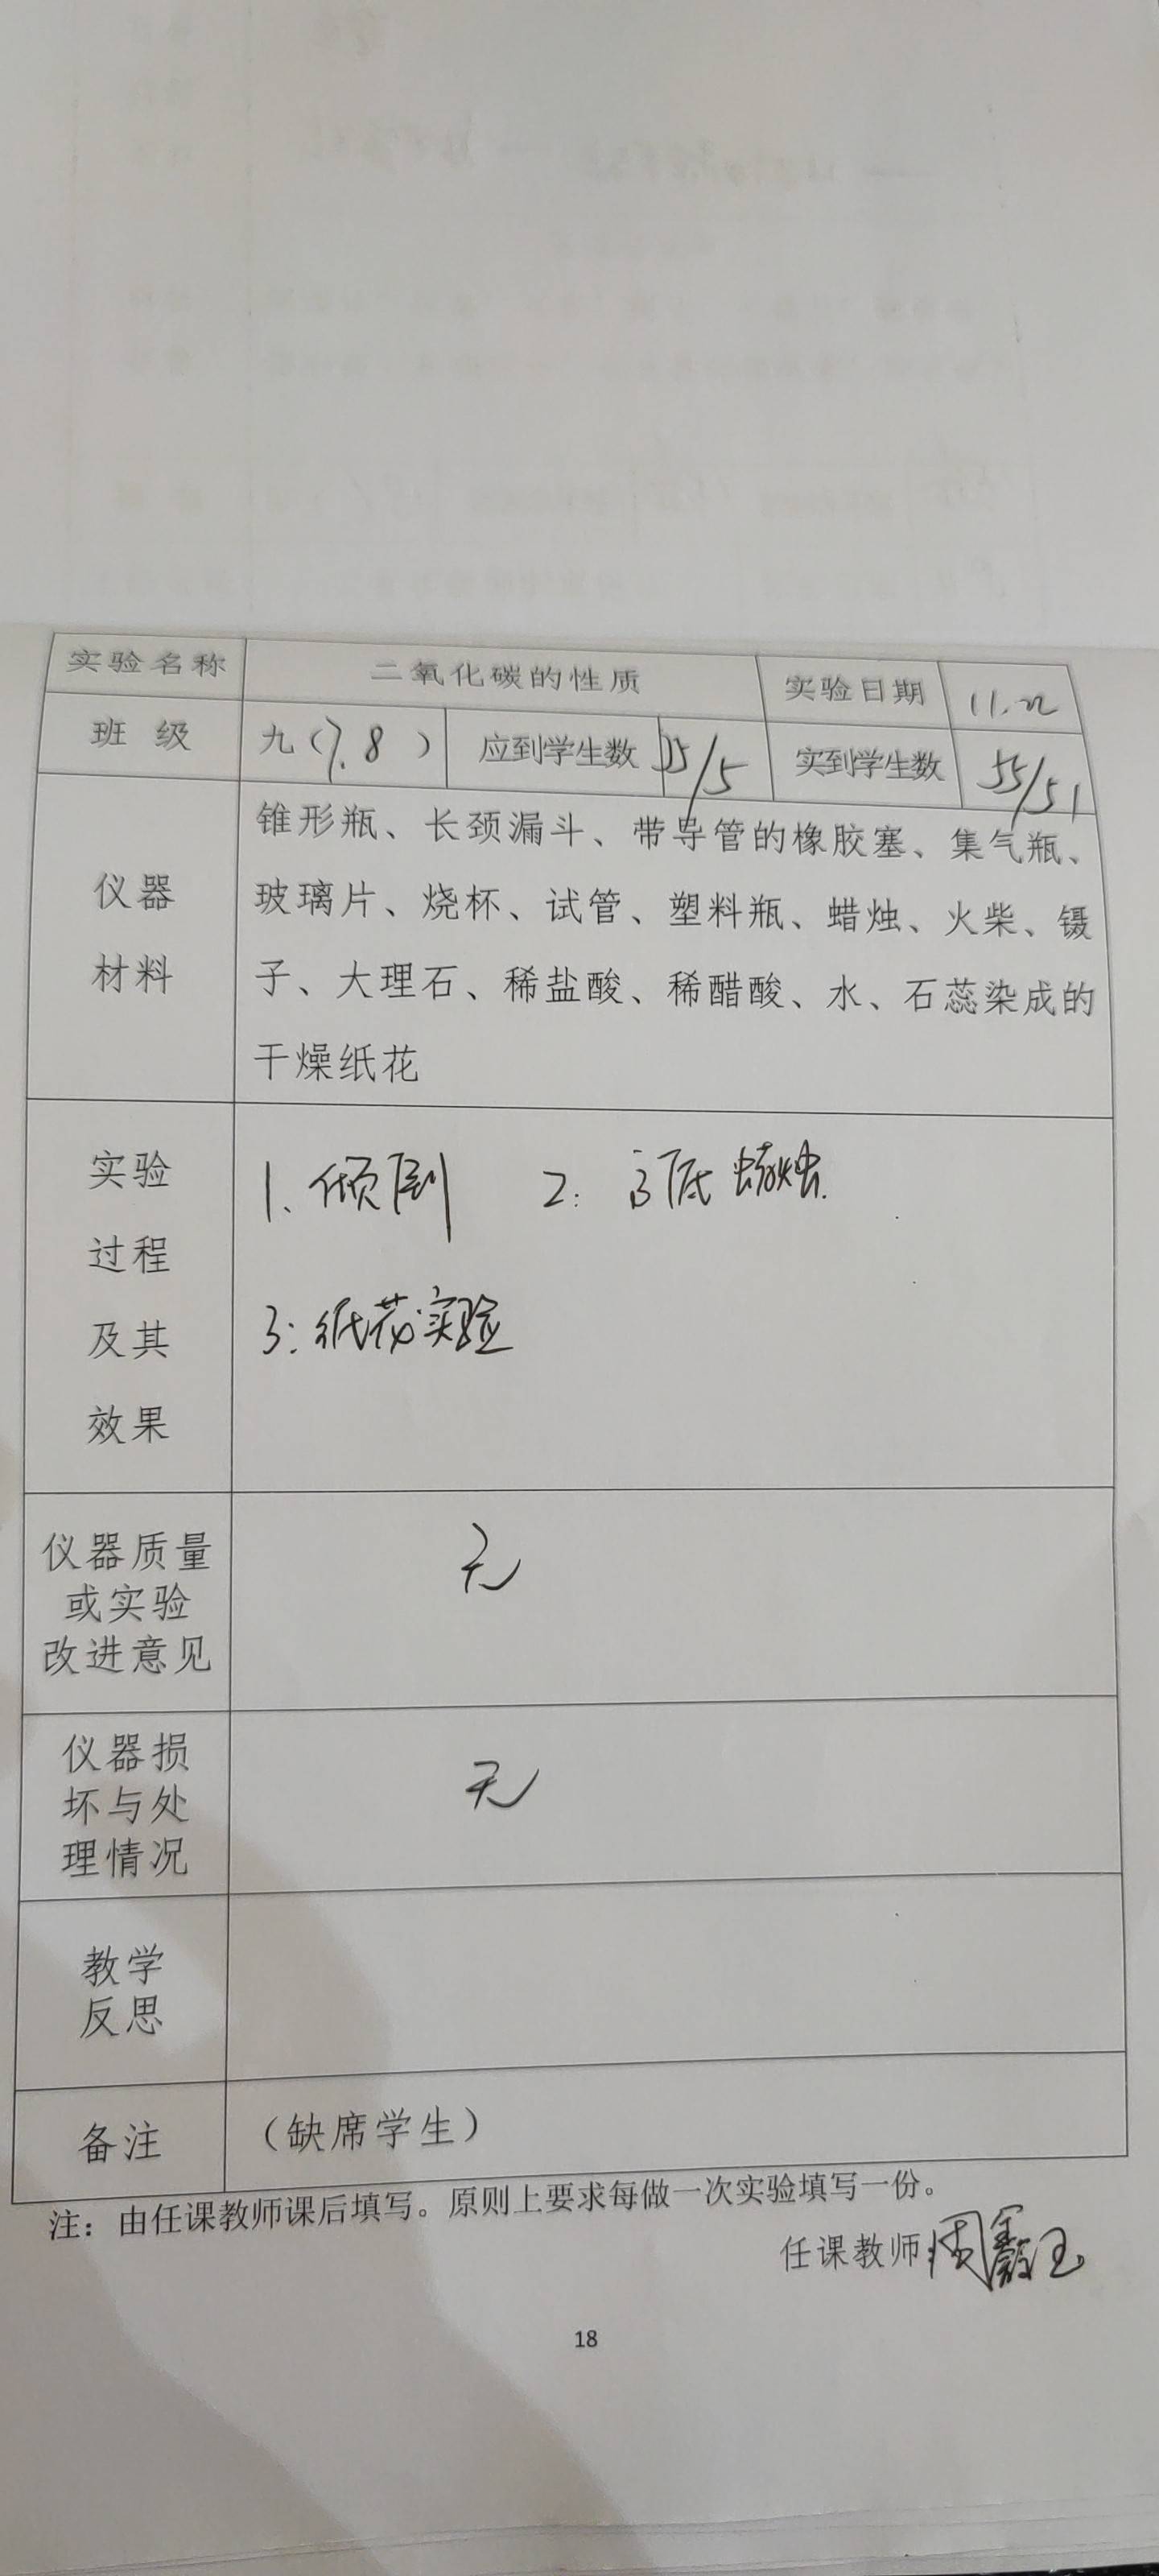 实验名称 二氧化碳的性质 实验日期 11.22
班级 九（7.8） 应到学生数 55/51 实到学生数 55/51
仪器
材料
锥形瓶、长颈漏斗、带导管的橡胶塞、集气瓶、
玻璃片、烧杯、试管、塑料瓶、蜡烛、火柴、镊
子、大理石、稀盐酸、稀醋酸、水、石蕊染成的
干燥纸花
实验
过程
及其
效果
1、倾倒 2：高低蜡烛.
3：纸花实验
仪器质量
或实验
改进意见
无
仪器损
坏与处
理情况
无
教学
反思
备注 （缺席学生）
注：由任课教师课后填写。原则上要求每做一次实验填写一份。
任课教师周
18